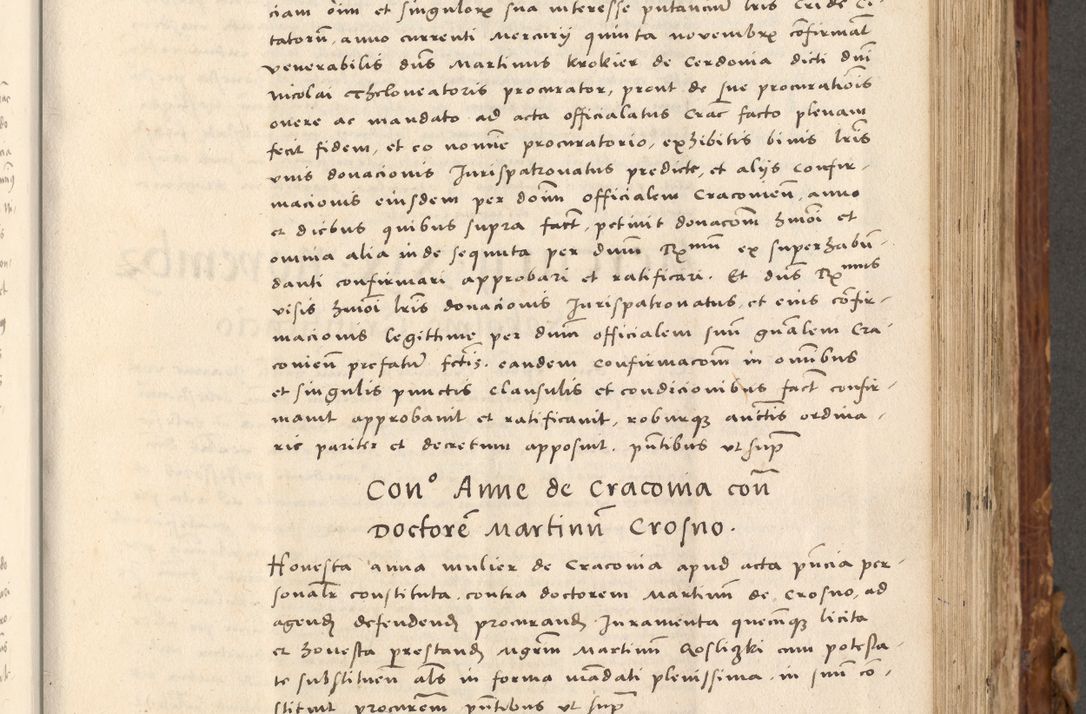 ciam oīm et singulorꝝ sua interesse putanciuꝫ lris
tatorū, anno currenti Mercurij quinta novembrꝫ cōfirmat
venerabilis dn̄s Martinus Krokier de Cerdonia dicti dn̄i
Nicolai procurator, prout de sue procuratiōis
onere ac mandato ad acta officialatus Crac̄ facto plenam
fecit fidem, et eo nomīe procuratorio, exhibitis binis lrīs
unis donacionis Jurispatronatus predicte, et aliis confir-
macionis eiusdem per dom̄ officialem Cracovieñ, anno
et diebus quibus supra fact̄, petivit donacōm hmōi et
omnia alia inde sequuta per dnūm Rmūm ex superhabūn-
danti confirmari approbari et ratificari. Et dn̄s Rmus
visis hmōi lrīs donacionis Jurispatronatus, et eius cōfir-
macionis legittime per dnūm officialem suū gnālem Cra-
covieñ prefatum fctīs, eandem confirmacōm in omībus
et singulis punctis clausulis et condicionibus fact̄ confir-
mavit approbavit et ratificavit, roburqꝫ auctīs ordina-
rie pariter et decretum apposuit. pn̄tibus ut sup̄
Conᵒ Anne de Cracovia con̄
Doctorē Martinū Crosno.
Honesta Anna mulier de Cracovia apud acta pn̄cia per-
sonalr̄ constituta, contra doctorem Martinū de Crosno, ad
agendꝫ defendendꝫ procurandꝫ Juramenta quecūqꝫ licita
et honesta prestandꝫ Mgrūm Martinū Gosliczki cum potesta-
te substituen̄ al̄s in forma mādati plenissima, in suū cō-
stituit procurēm pn̄tibus ut sup̄